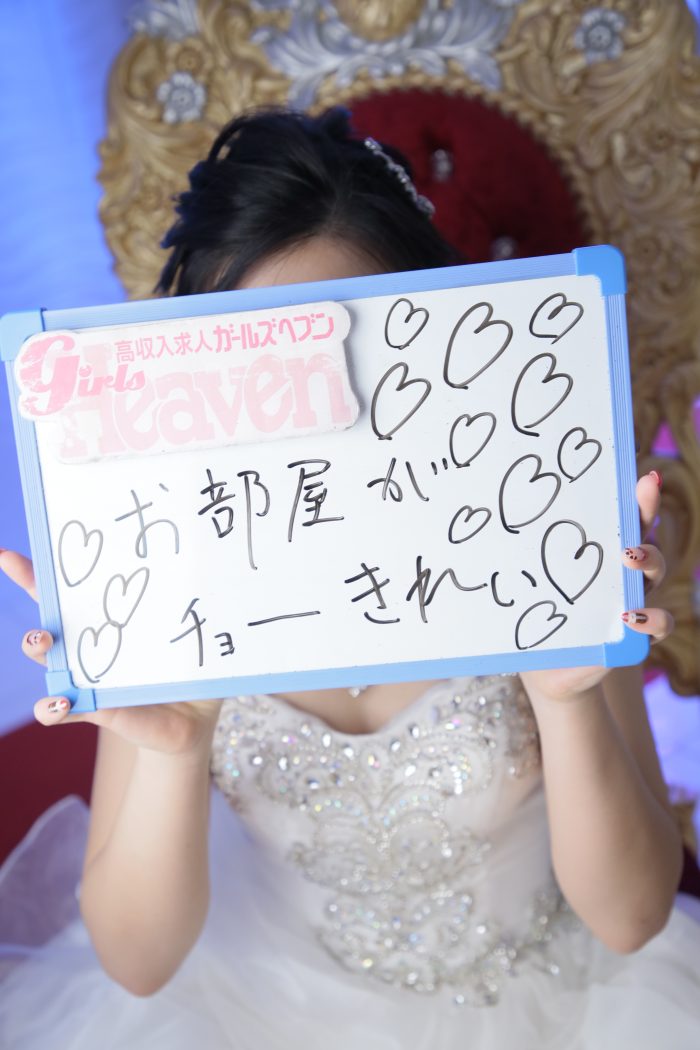 高収入求人ガールズヘブン
Girls
Heaven
お部屋が
チョーきれい